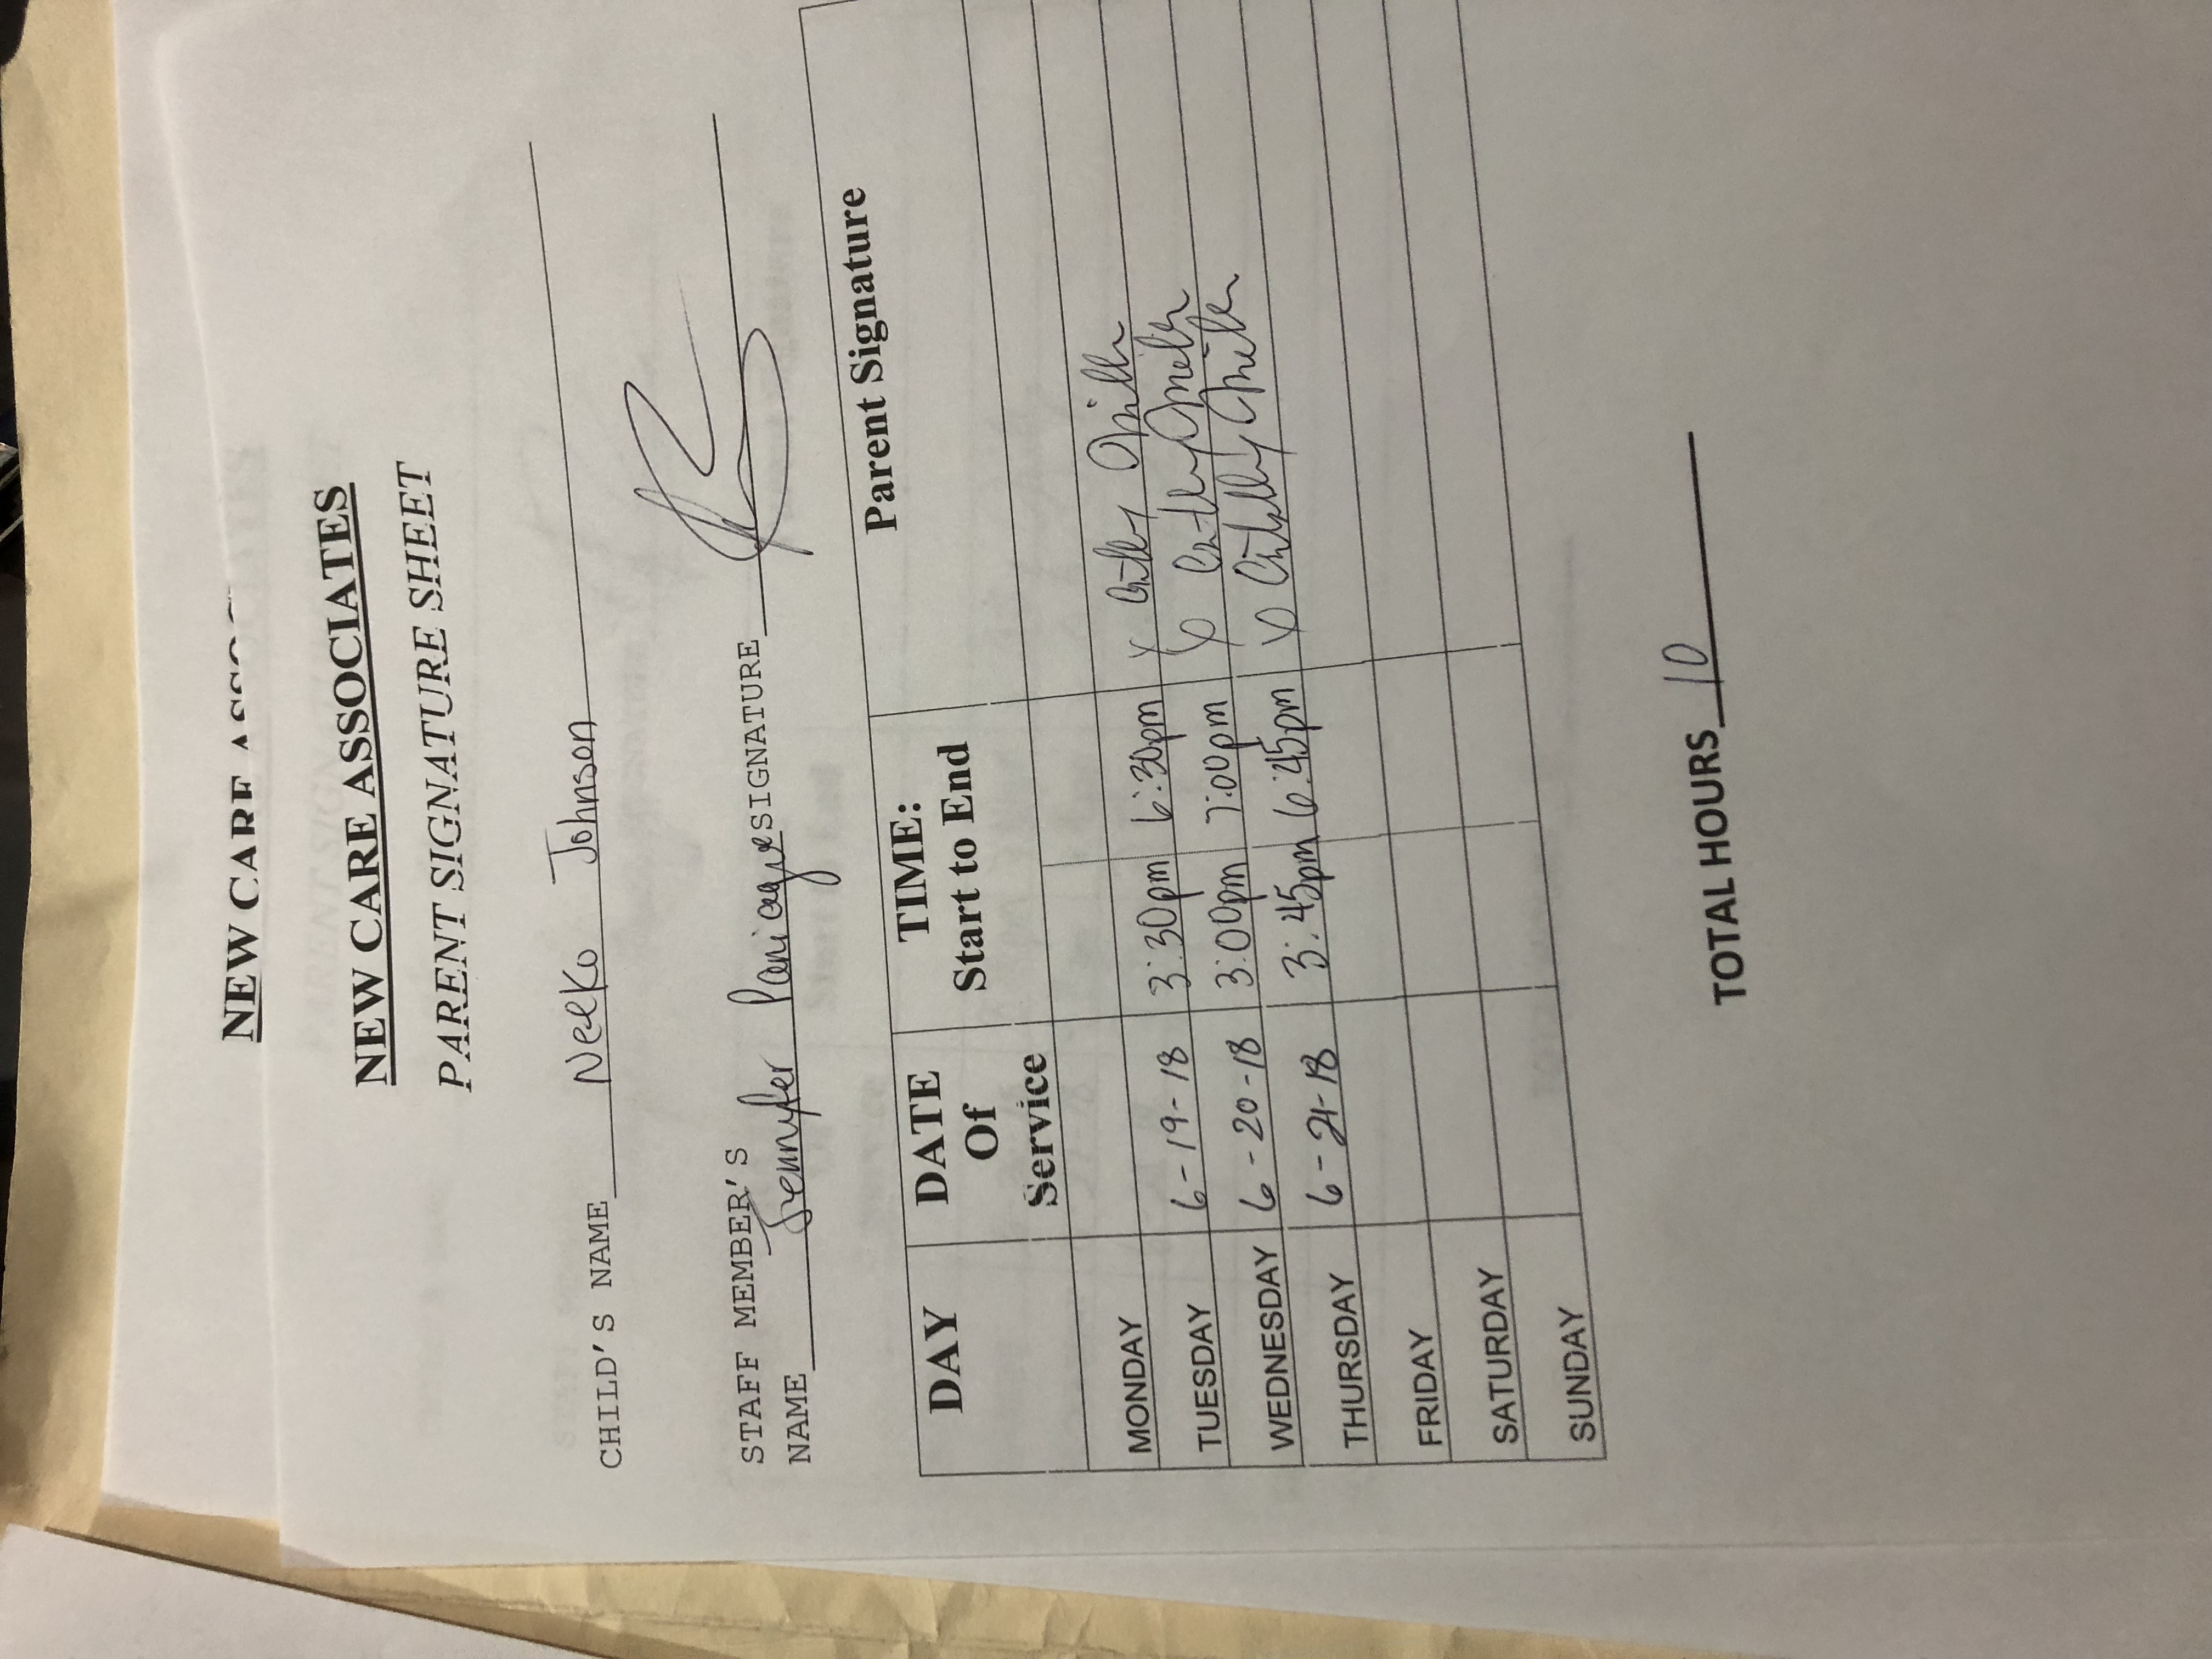 NEW CARE ASSOC
NEW CARE ASSOCIATES
PARENT SIGNATURE SHEET
CHILD'S NAME Neeko Johnson
STAFF MEMBER'S
NAME Jennyfer Paniague SIGNATURE
DAY DATE Of Service TIME: Start to End Parent Signature
MONDAY
TUESDAY 6-19-18 3:30pm 6:30pm x Cathy Miller
WEDNESDAY 6-20-18 3:00pm 7:00pm x Cathy Miller
THURSDAY 6-21-18 3:45pm 6:45pm x Cathy Miller
FRIDAY
SATURDAY
SUNDAY
TOTAL HOURS 10